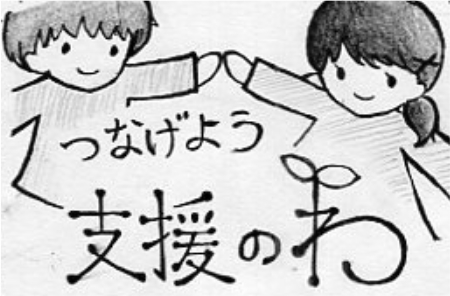 つなげよう
支援のわ